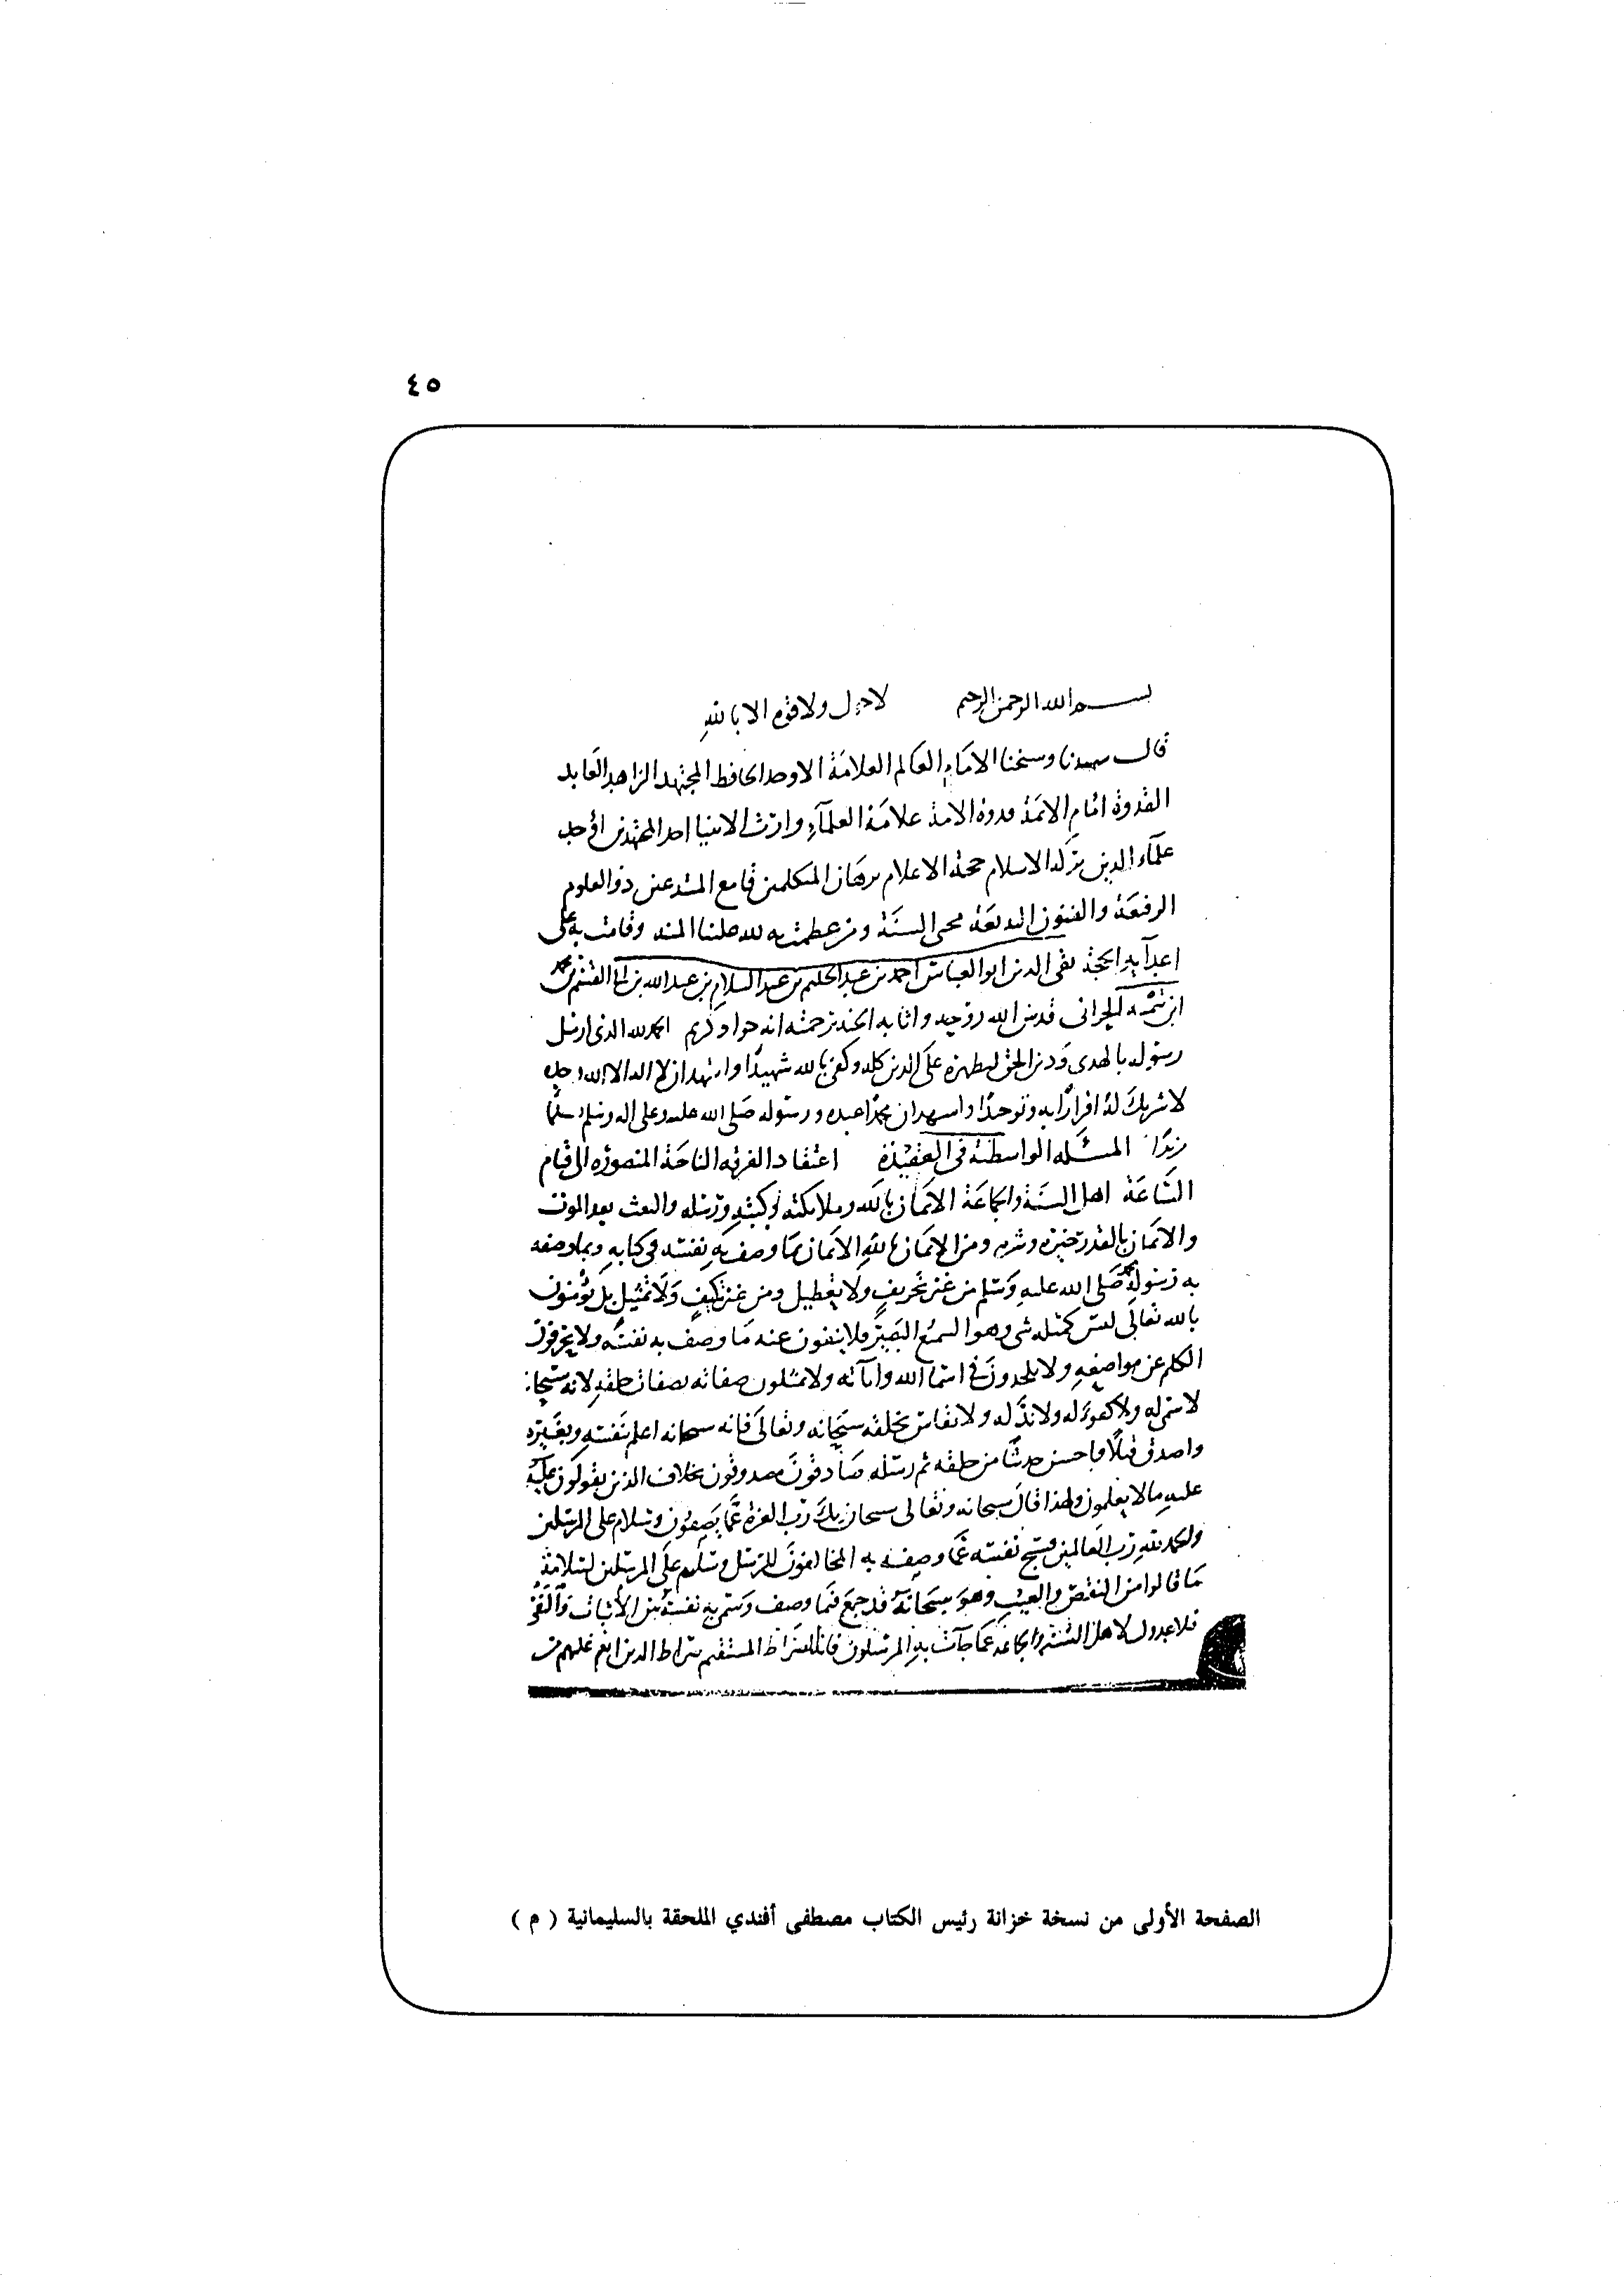 ٤٥
بسم الله الرحمن الرحيم لا حول ولا قوة الا بالله
قال سيدنا وشيخنا الامام العالم العلامة الاوحد الحافظ المجتهد الزاهد العابد
القدوة امام الائمة قدوة الامة علامة العلماء وارث الانبيا احد المجتهدين اوحد
علماء الدين بركة الاسلام حجة الاعلام برهان المتكلمين قامع المبتدعين ذو العلوم
الرفيعة والفنون البديعة محي السنة ومن عظمت به لله علينا المنة وقامت به على
اعدآيه الحجة تقي الدين ابو العباس احمد بن عبد الحليم بن عبد السلام بن عبد الله بن ابي القسم بن محمد
ابن تيمية الحراني قدس الله روحه واثابه الجنة برحمته انه جواد كريم الحمد لله الذي ارسل
رسوله بالهدى ودين الحق ليظهره على الدين كله وكفى بالله شهيدًا واشهد ان لا اله الا الله وحده
لا شريك له اقرارًا به وتوحيدًا واشهد ان محمدًا عبده ورسوله صلى الله عليه وعلى اله وسلم تسليمًا
مزيدًا المسئلة الواسطية في العقيدة اعتقاد الفرقة الناجية المنصورة الى قيام
الساعة اهل السنة والجماعة الايمان بالله وملائكته وكتبه ورسله والبعث بعد الموت
والايمان بالقدر خيره وشره ومن الإيمان بالله الايمان بما وصف به نفسه في كتابه وبما وصفه
به رسوله محمد صلى الله عليه وسلم من غير تحريف ولا تعطيل ومن غير تكييف ولا تمثيل بل يؤمنون
بالله تعالى ليس كمثله شي وهو السميع البصير فلا ينفون عنه ما وصف به نفسه ولا يحرفون
الكلم عن مواضعه ولا يلحدون في اسما الله واياته ولا يمثلون صفاته بصفات خلقه لانه سبحانه
لا سمي له ولا كفو له ولا ند له ولا يقاس بخلقه سبحانه وتعالى فانه سبحانه اعلم بنفسه وبغيره
واصدق قيلًا واحسن حديثًا من خلقه ثم رسله صادقون مصدوقون بخلاف الذين يقولون عليه
عليه ما لا يعلمون ولهذا قال سبحانه وتعالى سبحان ربك رب العزة عما يصفون وسلام على المرسلين
والحمد لله رب العالمين فسبح نفسه عما وصفه به المخالفون للرسل وسلم على المرسلين لسلامة
ما قالوا من النقص والعيب وهو سبحانه قد جمع فيما وصف وسمى به نفسه بين الأثبات والنفي
فلا عدول لاهل السنة والجماعة عما جآت به المرسلون فانه الصراط المستقيم صراط الذين انعم عليهم من
الصفحة الأولى من نسخة خزانة رئيس الكتاب مصطفى أفندي الملحقة بالسليمانية ( م )